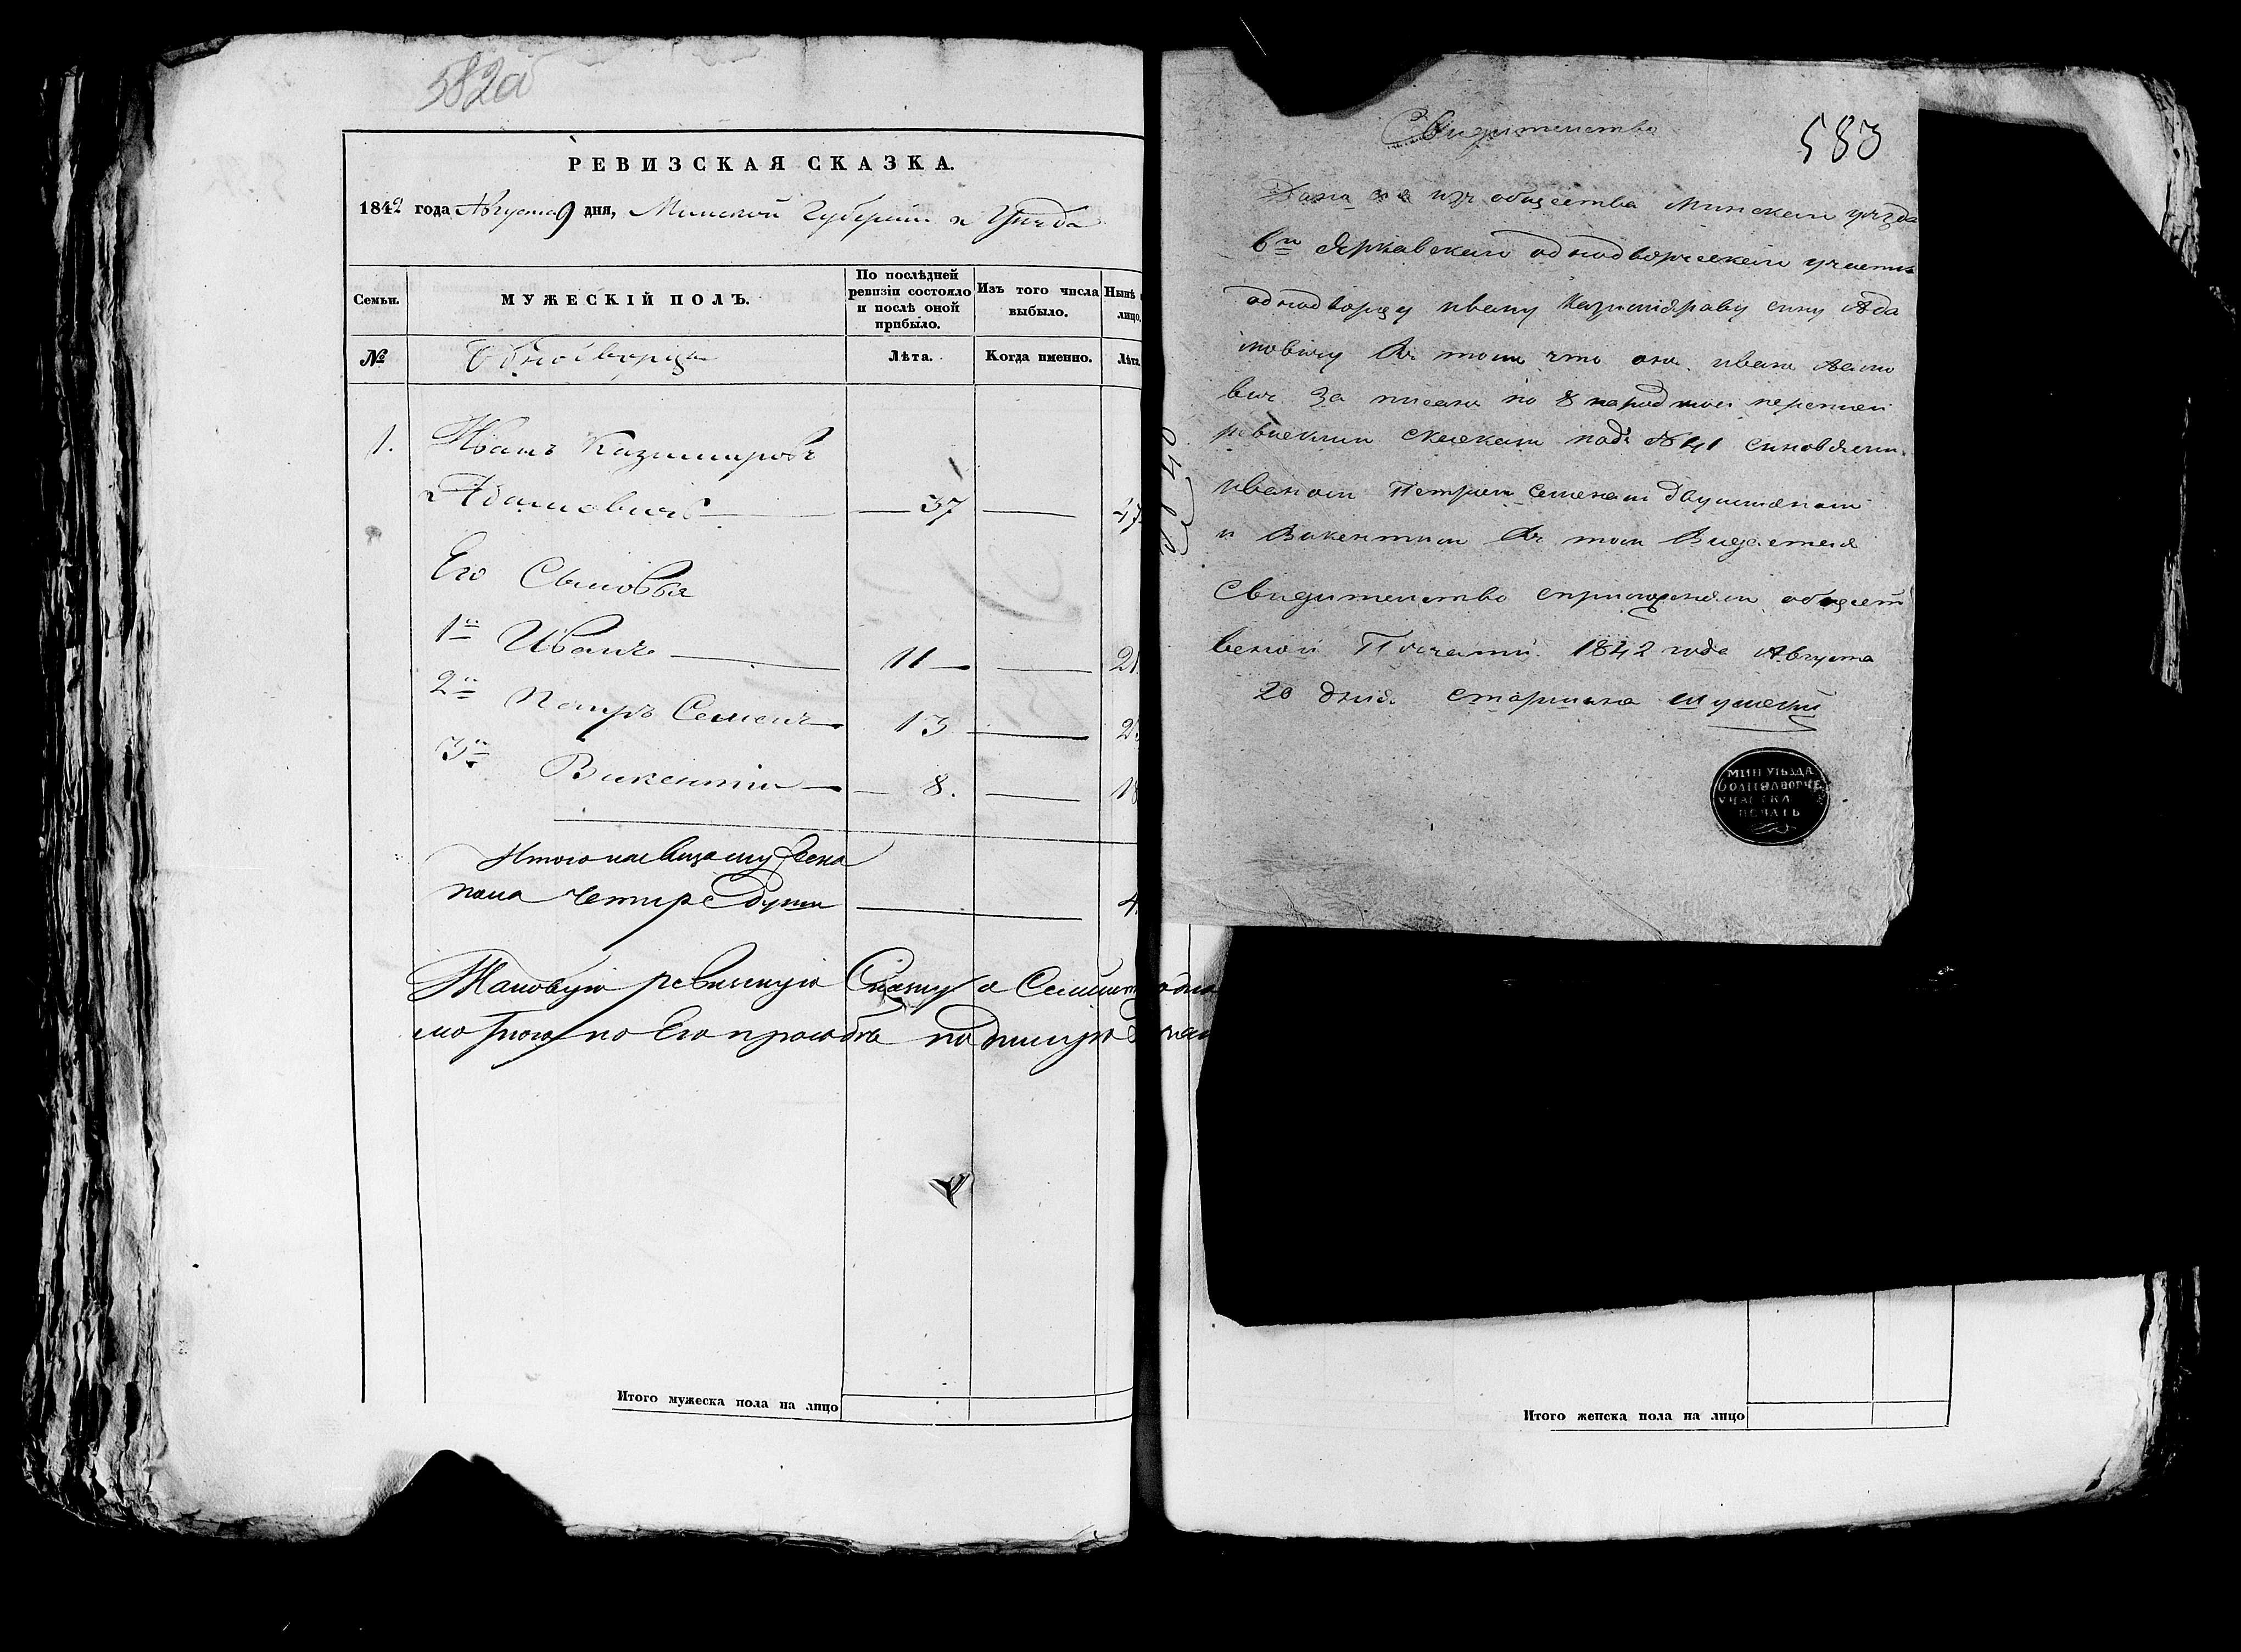 582а
РЕВИЗСКАЯ СКАЗКА.
1842 года Августа 9 дня, Минской Губернии и Уѣзда
Семьи.
МУЖЕСКІЙ ПОЛЪ.
По послѣдней ревизіи состояло и послѣ оной прибыло.
Изъ того числа выбыло.
Нынѣ
лицо.
№
Однодворцы
Лѣта.
Когда именно.
Лѣта
1.
Иванъ Казимировъ
Адамовичъ 37 47
Его Сыновья
1й Иванъ 11 21
2й Петръ Семенъ 13 2
3й Викентій 8. 18
Итого налицо мужеска
пола четыре души 4
Таковую ревискую Скаску а
по Его прозбѣ
Итого мужеска пола на лицо
583
Свидителство
Дано изъ общества Минскаго уѣзда
6го однодворческаго участка
однодворцу ивану Казимѣраву сину Ада
мовичу Въ том что онъ иванъ Адамо
вич За писанъ по 8 народной
ревиским скаскам подъ №41 синовями
иваном Петром Семеном
и Викентием Въ том Видается
Свидителство общест
веной Печати. 1842 года Августа
20 дня. старшина
МИН УѢЗДА
6 ОДНОДВОРЧЕ
УЧАСТКА
ПЕЧАТЬ
Итого женска пола на лицо